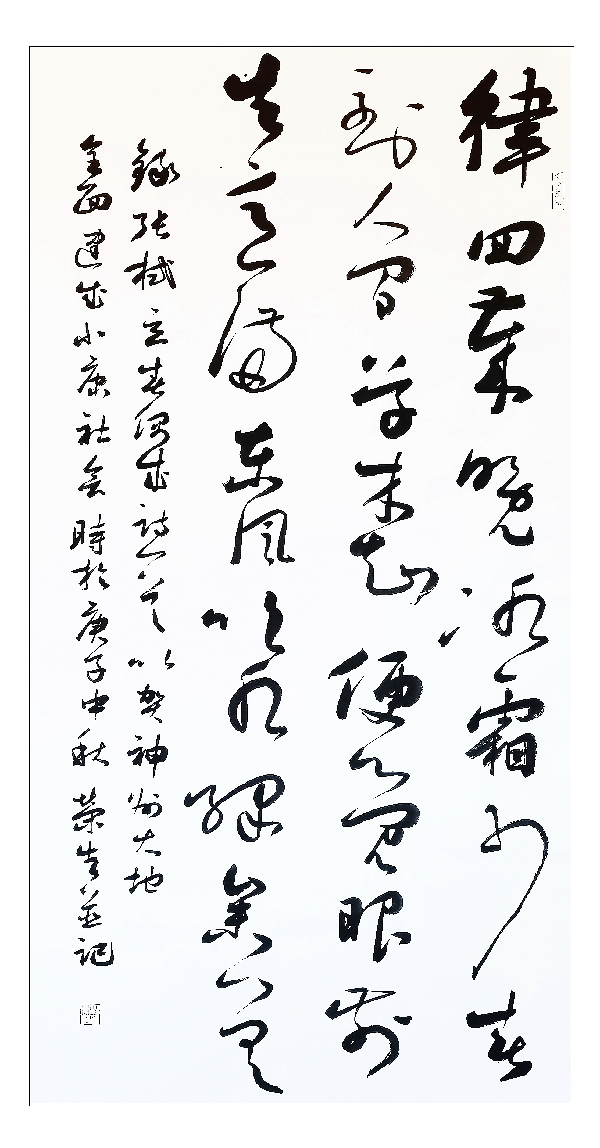 律回歲晚冰霜少春
到人间草木知便觉眼前
生意满東风吹水绿参差
錄张栻立春偶成诗一首以贺神州大地
全面建成小康社会時於庚子中秋荣生並记